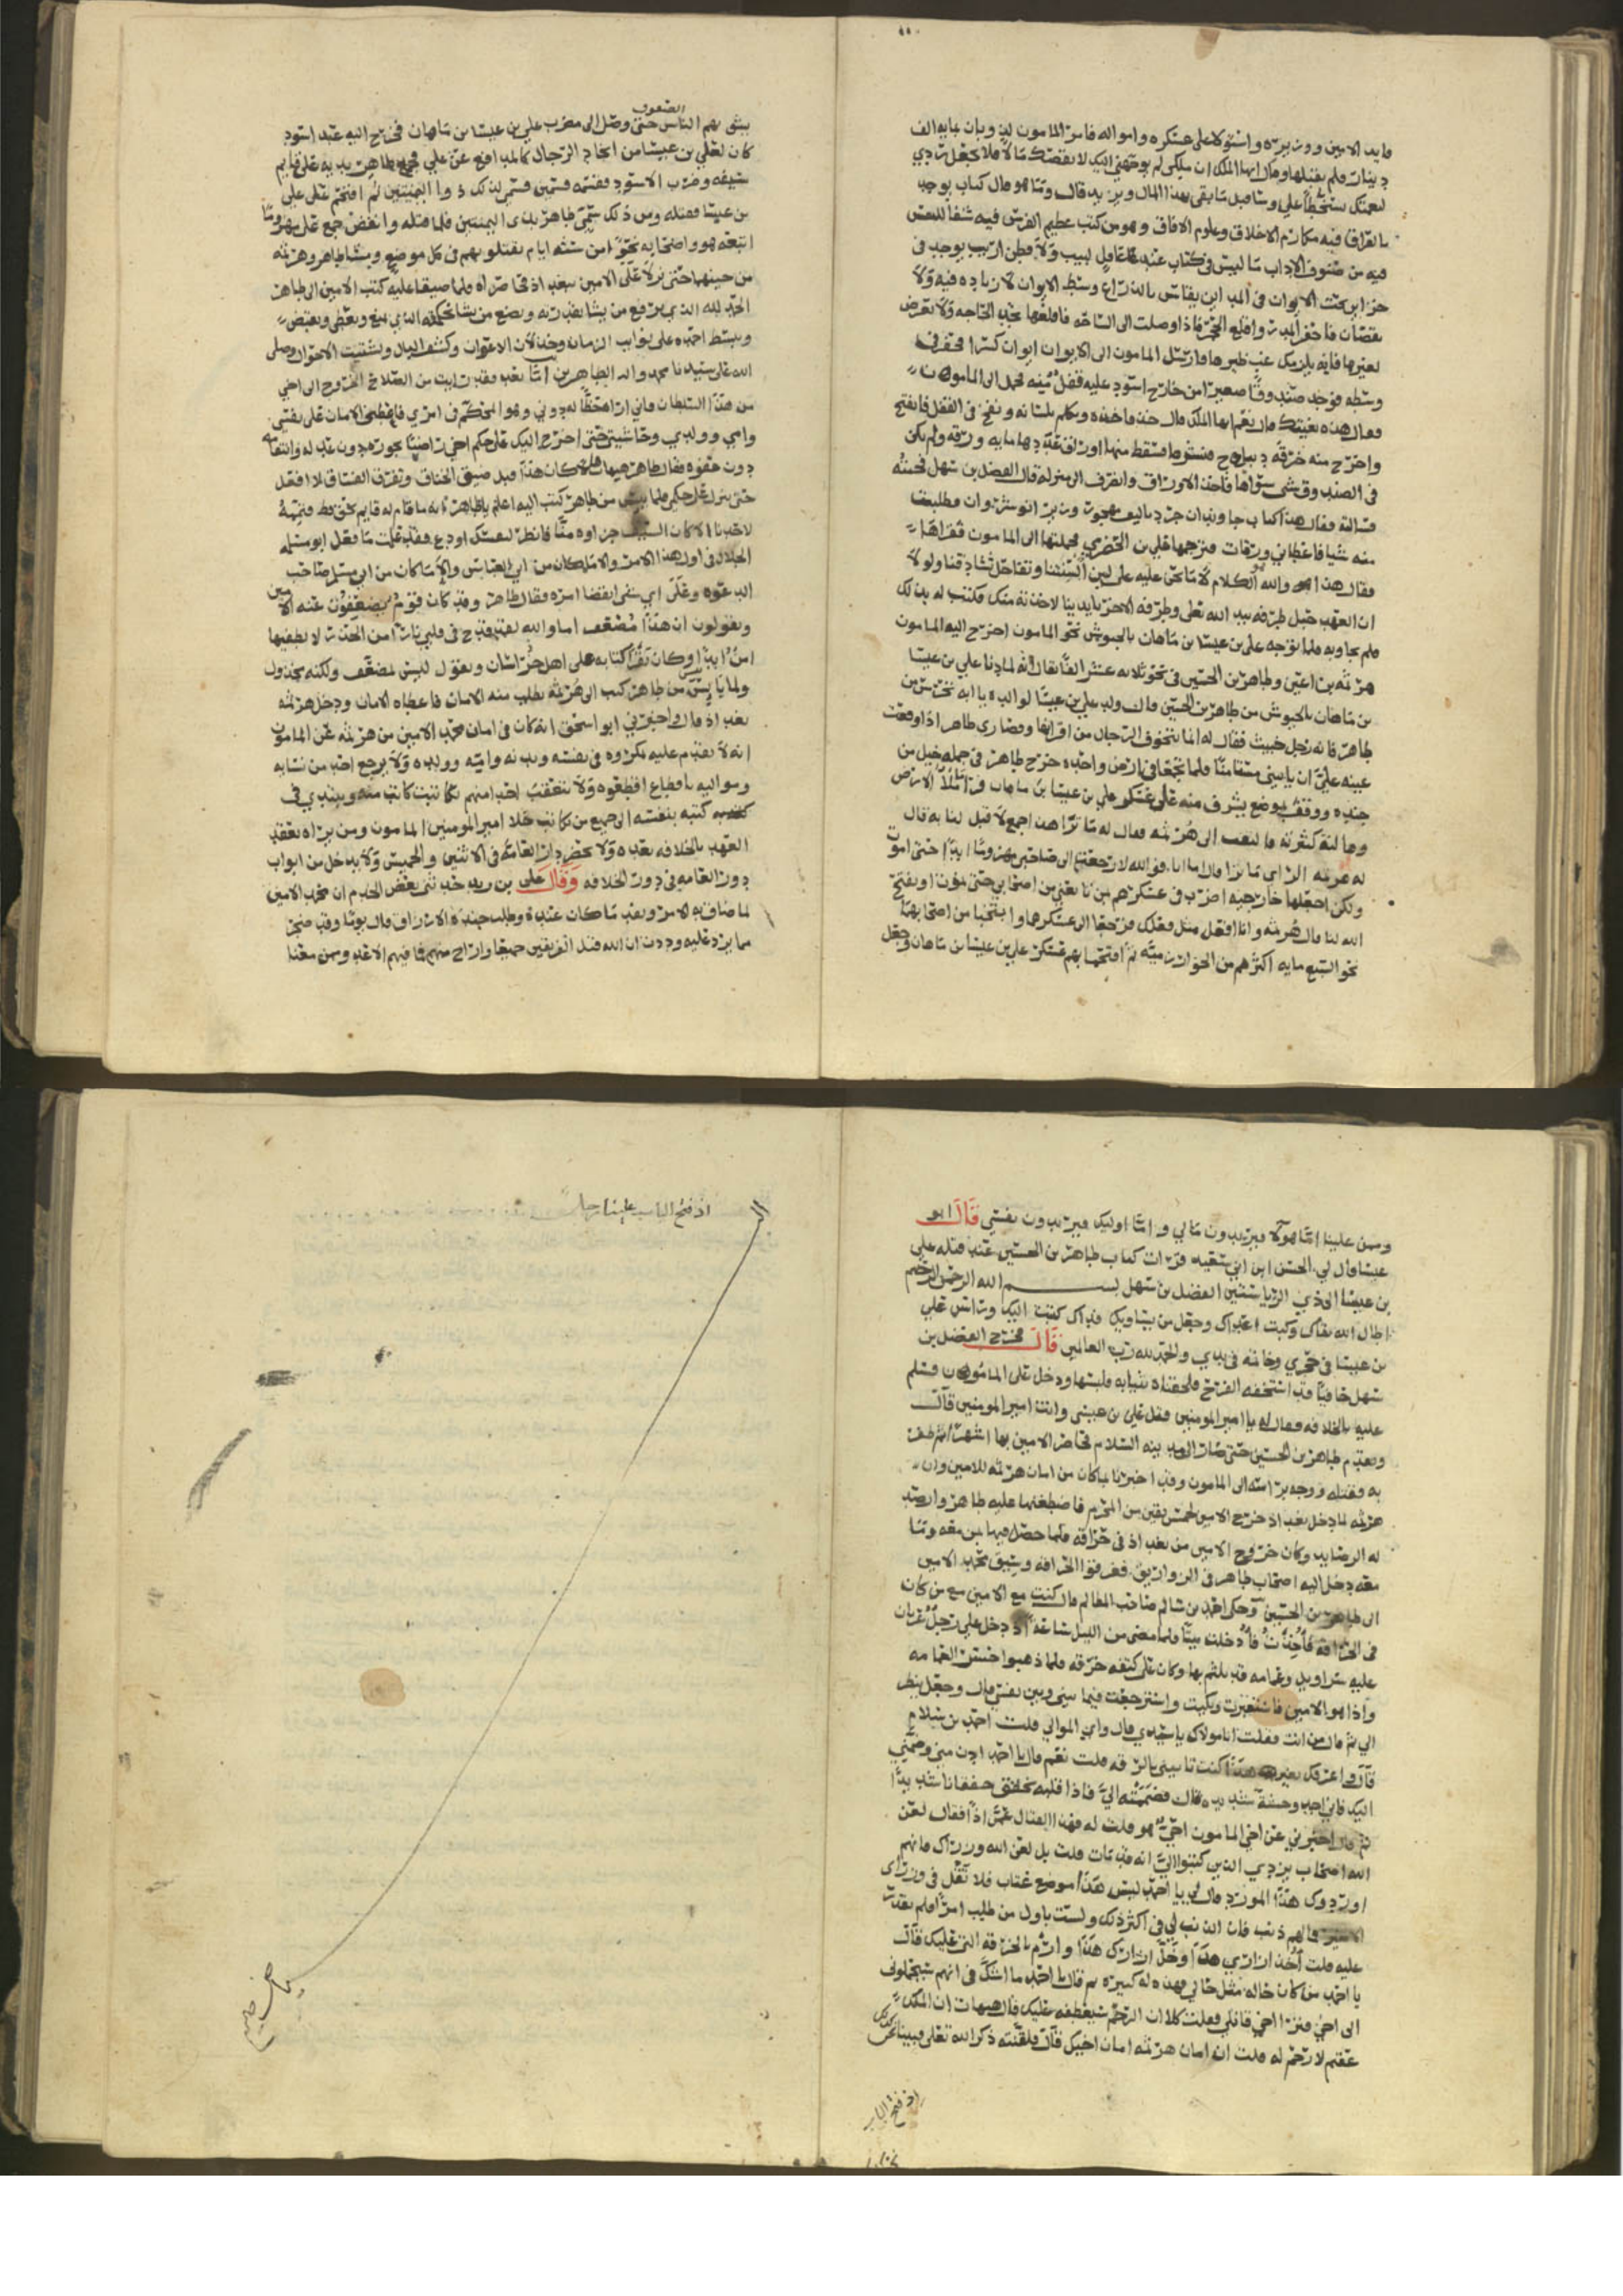 قايد الامين ووزيره واستولا على عسكره وامواله فامر المامون له بمايه الف
دينار فلم يقبلها وقال ايها الملك ان ملكي لم يوجهني اليك لانقصك مالا فلا تجعل ردي
لنعمتك سخطا علي وسا قبل ما يفي بهذا المال ويزيد قال وما هو قال كتاب يوجد
بالعراق فيه مكارم الاخلاق وعلوم الافاق وهو من كتب عظيم الفرس فيه شفا للنفس
فيه من صنوف الاداب ما ليس في كتاب عند عاقل لبيب ولا فطن اريب يوجد في
تحت الايوان في المداين يقاس بالذراع وسط الايوان لا زياده فيه ولا
نقصان فاحفر المدر واقلع الحجر فاذا وصلت الى الساجه فاقلعها تجد الحاجه ولا تعرض
لغيرها فانه يلزمك غب ضيرها فارسل المامون الى الايوان ايوان كسرا فحفر في
وسطه فوجد صندوقا صغيرا من اسود عليه قفل منه فحمل الى المامون
فقال هذه بغيتك قال نعم ايها الملك قال خذه فاخذه وتكلم بلسانه ونفخ في القفل فانفتح
واخرج منه خرقه ديباج فنشرها فسقط منها اوراق فعدها مايه ورقه ولم يكن
في الصندوق شي سواها فاخذ الاوراق وانصرف الى منزله قال الفضل بن سهل فجئته
فسالته فقال هذا كتاب جاويدان خرد تاليف وزير انوشروان وطلبت
منه شيا فاعطاني ورقات فترجمها علي بن الحضري فحملتها الى المامون فقراها
فقال هذا والله الكلام لا ما نحن عليه على لين السنتنا
ان العهد حبل طرفه بيد الله تعلى وطرفه الاخر بايدينا لاخذته منك فكتب له بذلك
فلم يجاوبه فلما توجه علي بن عيسا بن ماهان بالجيوش نحو المامون اخرج اليه المامون
هرثمه بن اعين وطاهر بن الحسين في نحو ثلاثه عشر الفا فقال انه لما دنا علي بن عيسا
بن ماهان بالجيوش من طاهر بن الحسين قال ولد علي بن عيسا لوالده يا ابه تحترس من
طاهر فانه رجل خبيث فقال له انما تتخوف الرجال من اقرانها وقصاري طاهر اذا وقعت
عينه علي ان ياتيني مستامنا فلما تجمعا في ارض واحده خرج طاهر في جمله خيل من
جنده ووقف بموضع يشرف منه على عسكر علي بن عيسا بن ماهان
وهالته كثرته فالتفت الى هرثمه فقال له ما ترا هذا جمع لا قبل لنا به قال
له هرثمه الراي ما ترا قال اما انا فوالله لا رجعت الى صاحبي مهزوما ابدا حتى اموت
ولكن اجعلها خارجيه اضرب في عسكرهم بمن تابعني من اصحابي حتى نموت او يفتح
الله لنا قال هرثمه وانا افعل مثل فعلك فرجعا الى عسكرهما وانتخبا من اصحابهما
نحو السبع مايه اكثرهم من الخوارزميه ثم اقتحما بهم عسكر علي بن عيسا بن ماهان وجعل
الصفوف
يشق بهم الناس حتى وصل الى مضرب علي بن عيسا بن ماهان فخرج اليه عبد اسود
كان لعلي بن عيسا من انجاد الرجال كالمدافع عن علي فجمع طاهر يديه على قايم
سيفه وضرب الاسود فقسمه قسمين فسمي لذلك ذوا اليمينين ثم اقتحم على علي
بن عيسا فقتله ومن ذلك سمي طاهر بذي اليمينين فلما قتله وانفض جمع علي مهزوما
اتبعه هو واصحابه نحوا من سته ايام يقتلوهم في كل موضع وسا طاهر وهرثمه
من حينهما حتى نزلا على الامين ببغداذ فحاصراه ولما ضيقا عليه كتب الامين الى طاهر
الحمد لله الذي يرفع من يشا بقدرته ويضع من يشا بحكمته الذي يمنع ويعطي ويقبض
ويبسط احمده على نوايب الزمان وخذلان الاعوان وكسف البال وتشتيت الاحوال وصلى
الله على سيدنا محمد واله الطاهرين اما بعد فقد رايت من الصلاح الخروج الى اخي
من هذا السلطان فاني اراه حظا له دوني وهو المحكم في امري فاعطني الامان على نفسي
وامي وولدي وحاشيتي حتى اخرج اليك على حكم اخي راضيا بجوره دون عدله وانتقامه
دون عفوه فقال طاهر هيهات هلا كان هذا قبل ضيق الخناق وتفرق الفساق لا افعل
حتى ينزل على حكمي فلما ييس من طاهر كتب اليه اعلم يا طاهر انه ما قام له قايم بحق قط فتممه
لاحد الا كان السيف جزاوه منا فانظر لنفسك او دع فقد علمت ما فعل ابو سلمه
الخلال في اول هذا الامر والامله كان من ابي العباس والامر ما كان من ابي مسلم صاحب
الدعوه وعلى اي شي انقضا امره فقال طاهر وقد كان قوم يضعفون عنه الامين
ويقولون ان هذا مضعف اما والله لقد قدح في قلبي نارا من الحذر لا يطفيها
امن ابدا وكان يقرا كتابه على اهل خراسان ويقول ليس لمضعف ولكنه مخذول
ولما ايس من طاهر كتب الى هرثمه يطلب منه الامان فاعطاه الامان ودخل هرثمه
بغداذ قال واخبرني ابو اسحق انه كان في امان محمد الامين من هرثمه عن المامون
انه لا يقدم عليه مكروه في نفسه وبدنه وامته وولده ولا يرجع احد من نسايه
ومواليه باقطاع اقطعوه ولا يتعقب احد منهم كاتبه ويبتدي في
كتبه بنفسه الى جميع من يكاتب خلا امير المومنين المامون ومن يراه يعقد
العهد بالخلافه بعده ولا يحضر دار العامه في الاثنين والخميس ولا يدخل من ابواب
دور العامه في دور الخلافه وقال علي بن حدثني بعض الخدم ان محمد الامين
لما ضاق به الامر ونفد ما كان عنده وطلب جنده الارزاق قال يوما وقد ضجر
مما يرد عليه وددت ان الله قتل الفريقين جميعا واراح منهم فما فيهم الا عدو ممن معنا
وممن علينا اما هولا فيريدون مالي واما اوليك فيريدون نفسي قال ابو
عيسا قال لي الحسن ابن ابي سعيد قرات كتاب طاهر بن الحسين عند قتله علي
بن عيسا الى ذي الرياستين الفضل بن سهل بسم الله الرحمن الرحيم
اطال الله بقاك وكبت اعداك وجعل من يشناويك فداك كتبت اليك وراس علي
بن عيسا في حجري وخاتمه في يدي والحمد لله رب العالمين قال فخرج الفضل بن
سهل حافيا قد استخفه الفرح فلحقناه بثيابه فلبسها ودخل على المامون فسلم
عليه بالخلافه فقال له يا امير المومنين قتل علي بن عيسى وانت امير المومنين قال
وتقدم طاهر بن الحسين حتى صار الى مدينه السلام فحاصر الامين بها اشهرا ثم ظفر
به وقتله ووجه براسه الى المامون وقد اخبرنا بما كان من امان هرثمه للامين وان
هرثمه لما دخل بغداذ خرج الامين لخمس بقين من المحرم فاضطغنها عليه طاهر وارصد
له الرصايد وكان خروج الامين من بغداذ في حراقه فلما حصل فيها بمن معه وما
معه دخل اليه اصحاب طاهر في الزواريق فغرقوا الحراقه وسيق محمد الامين
الى طاهر بن الحسين وحكى احمد بن سالم صاحب المظالم قال كنت مع الامين مع من كان
في الحراقه فاخذت فادخلت بيتا فلما مضى من الليل ساعه اذ دخل علي رجل عريان
عليه سراويل وعمامه قد تلثم بها وكان على كتفه خرقه فلما ذهبوا حسر العمامه
واذا هو الامين فاستعبرت وبكيت واسترجعت فيما بيني وبين نفسي قال وجعل ينظر
الي ثم قال من انت فقلت انا مولاك يا سيدي قال واي الموالي قلت احمد بن سلام
قال واعرفك بغير هذا كنت تاتيني بالرقه قلت نعم قال يا احمد ادن مني وضمني
اليك فاني اجد وحشة شديده قال فضممته الي فاذا قلبه يخفق خفقانا شديدا
ثم قال اخبرني عن اخي المامون احي هو قلت له فهذا القتال عمن اذا فقال لعن
الله اصحاب بريدي الذين كتبوا الي انه قد مات قلت بل لعن الله وزراك فانهم
اوردوك هذا المورد قال لي يا احمد ليس هذا موضع عتاب فلا تقل في وزراى
الا خيرا فما لهم ذنب فان الذنب لي في اكثر ذلك ولست باول من طلب امرا فلم يقدر
عليه قلت خذ ازاري هذا وخل ازارك هذا وارم بالخرقه التي عليك قال
يا احمد من كان حاله مثل حالي فهذه له كبيره ثم قال يا احمد ما اشك في انهم سيحملوني
الى اخي فترا اخي قاتلي فقلت كلا ان الرحم ستعطفه عليك قال هيهات ان الملك
عقيم لا رحم له قلت ان امان هرثمه امان اخيك قال فلقنته ذكر الله تعلى فبينا نحن كذلك
اذ فتح الباب
اذ فتح الباب علينا رجل